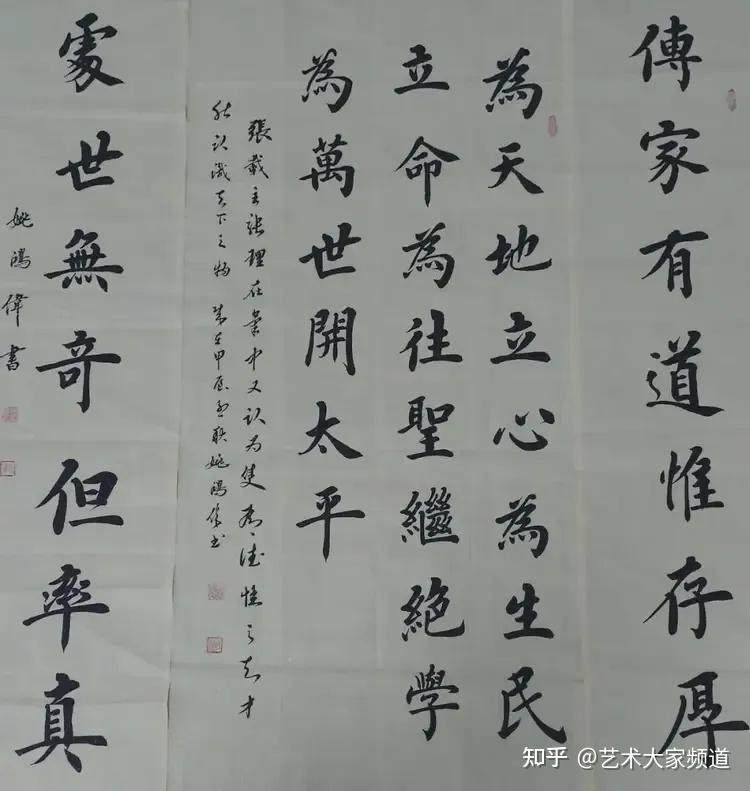 傳家有道惟存厚
為天地立心為生民
立命為往聖繼絕學
為萬世開太平
張載主張理在氣中又認為隻有德性之知才
能認識天下之物 歲在甲辰姚鴻偉書
處世無奇但率真
姚鴻偉書
知乎 @艺术大家频道